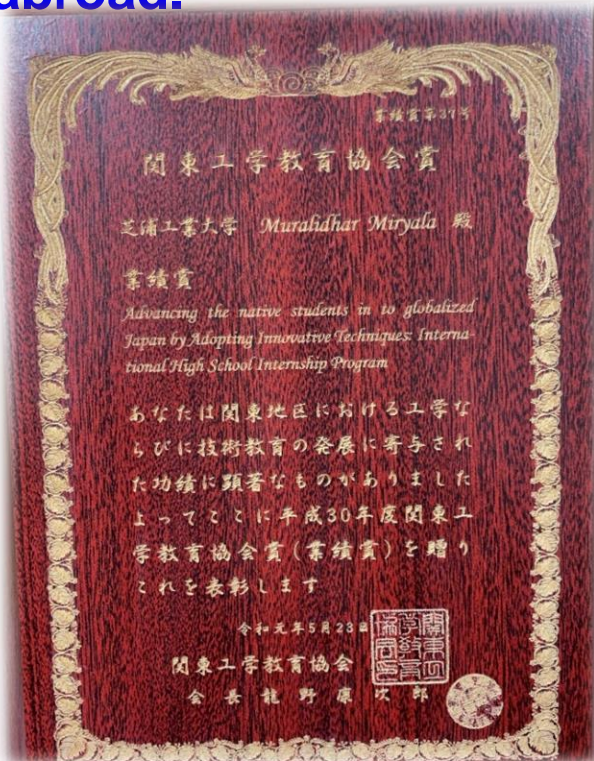 abroad.
業績賞第37号
関東工学教育協会賞
芝浦工業大学 Muralidhar Miryala 殿
業績賞
Advancing the native students in to globalized
Japan by Adopting Innovative Techniques: Interna-
tional High School Internship Program
あなたは関東地区における工学な
らびに技術教育の発展に寄与され
た功績に顕著なものがありました
よってここに平成30年度関東工
学教育協会賞(業績賞)を贈り
これを表彰します
令和元年5月23日
関東工学教育協会
会長 龍野 康次郎